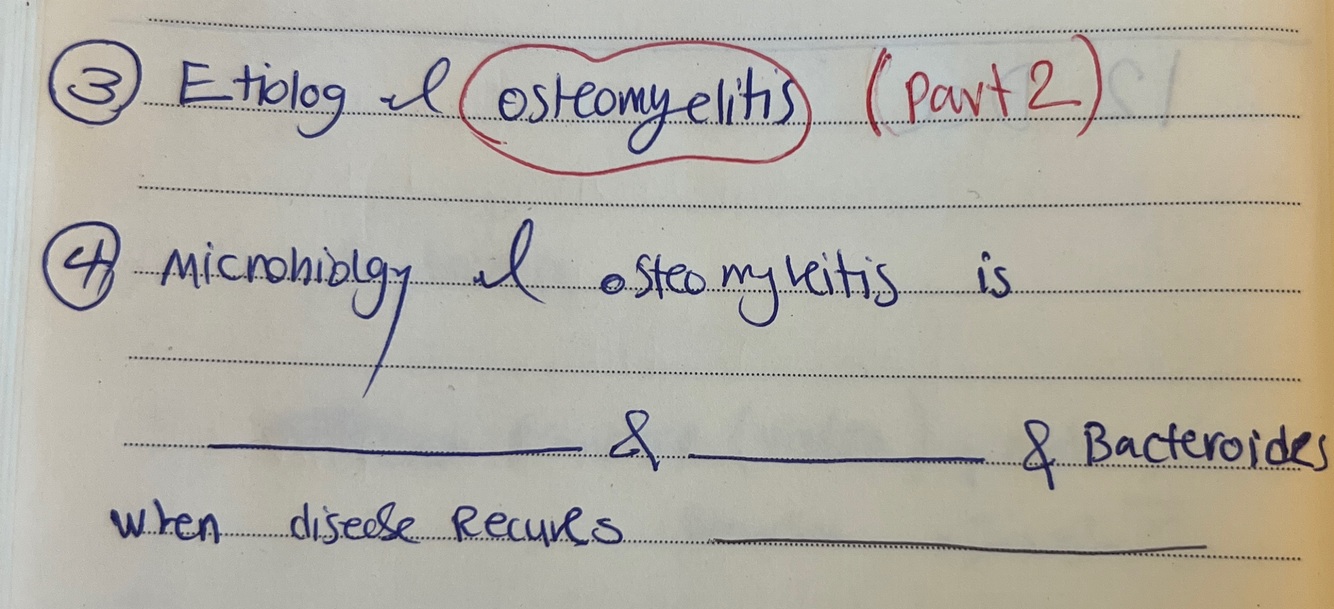 ③ Etiolog of osteomyelitis (part 2)
④ Microhiolgy of osteomyleitis is
& & Bacteroides
when disease Recures